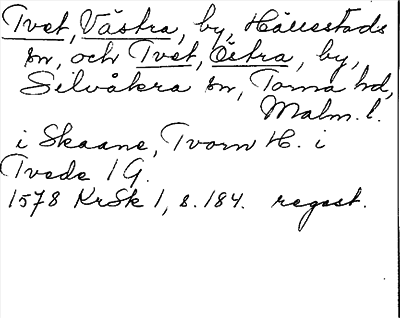 Tvet, Västra, by, Hällestads
sn, och Tvet, Östra, by,
Silvåkra sn, Torna hd,
Malm. l.
i Skaane, Tvorn H. i
Tvede 1 G.
1578 KrSk 1, s. 184. regest.